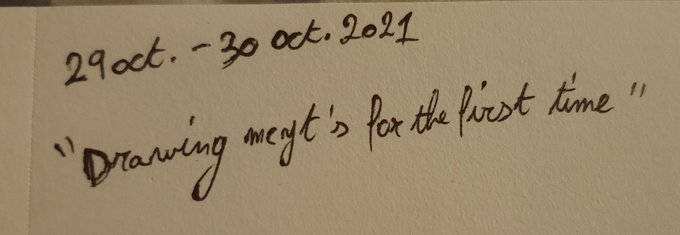 29 oct. - 30 oct. 2021
"Drawing meyt's for the first time"